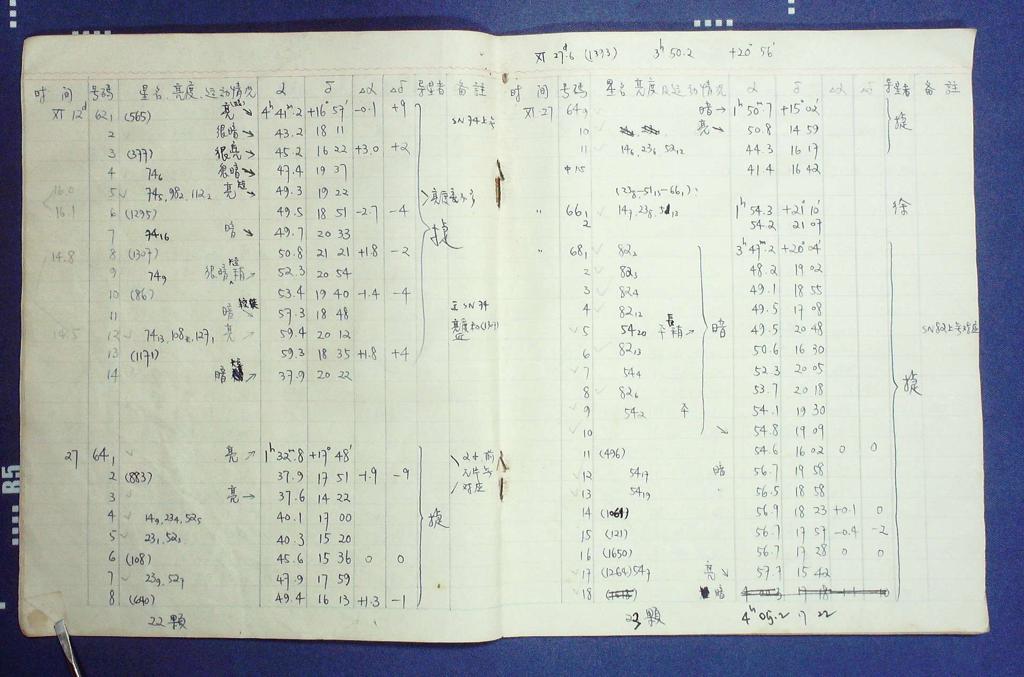 XI 27.6d (1393) 3h 50.2 +20° 56'
时 间 号码 星名,亮度,运动情况 α δ Δα Δδ 寻星者 备 註
XI 12d 62₁ (565) 亮 4h 41m.2 +16° 57' -0.1 +9
2 很暗↘ 43.2 18 11
3 (377) 很亮↘ 45.2 16 22 +3.0 +2
4 74₆ 很暗↘ 47.4 19 37
16.0 5 74₅, 98₂, 112₂ 亮 49.3 19 22
16.1 6 (1295) 49.5 18 51 -2.7 -4
7 74₁₆ 暗↘ 49.7 20 33
14.8 8 (1307) 50.8 21 21 +1.8 -2
9 74₉ 很暗 52.3 20 54
10 (86) 53.4 19 40 -1.4 -4
11 暗 57.3 18 48
14.5 12 74₁₃, 108₄, 127₁ 亮 59.4 20 12
13 (1171) 59.3 18 35 +1.8 +4
14 暗 37.9 20 22
27 64₁ 亮↗ 1h 32m.8 +17° 48'
2 (883) 37.9 17 51 -1.9 -9
3 亮→ 37.6 14 22
4 14₉, 23₄, 52₅ 40.1 17 00
5 23₁, 52₁ 40.3 15 20
6 (108) 45.6 15 36 0 0
7 23₉, 52₇ 47.9 17 59
8 (640) 49.4 16 13 +1.3 -1
22 顆
时 间 号码 星名,亮度及运动情况 α δ Δα Δδ 寻星者 备 註
XI 27 64₉ 暗→ 1h 50m.7 +15° 02'
10 亮↘ 50.8 14 59
11 14₆, 23₆, 52₁₂ 44.3 16 17
15 41.4 16 42
(23₈-51₁₅-66₁):
" 66₁ 14₇, 23₅, 51₁₂ 1h 54.3 +21° 10'
2 54.2 21 07
徐
" 68₁ 82₂ 3h 47m.2 +20° 04'
2 82₃ 48.2 19 02
3 82₄ 49.1 18 55
4 82₁₂ 49.5 17 08
5 54₂₀ 暗 49.5 20 48 SN82上号对座
6 82₁₃ 50.6 16 30
7 54₄ 52.3 20 05
8 82₆ 53.7 20 18
9 54₂ 54.1 19 30
10 ↘ 54.8 19 09
11 (496) 54.6 16 02 0 0
12 54₁₇ 暗 56.7 19 58
13 54₁₉ " 56.5 18 58
14 (1064) 56.9 18 23 +0.1 0
15 (121) 56.7 17 57 -0.4 -2
16 (1650) 56.7 17 28 0 0
17 (1264) 54₇ 亮↘ 57.7 15 42
18 暗
23 顆 4h 05.2 17 22
R5